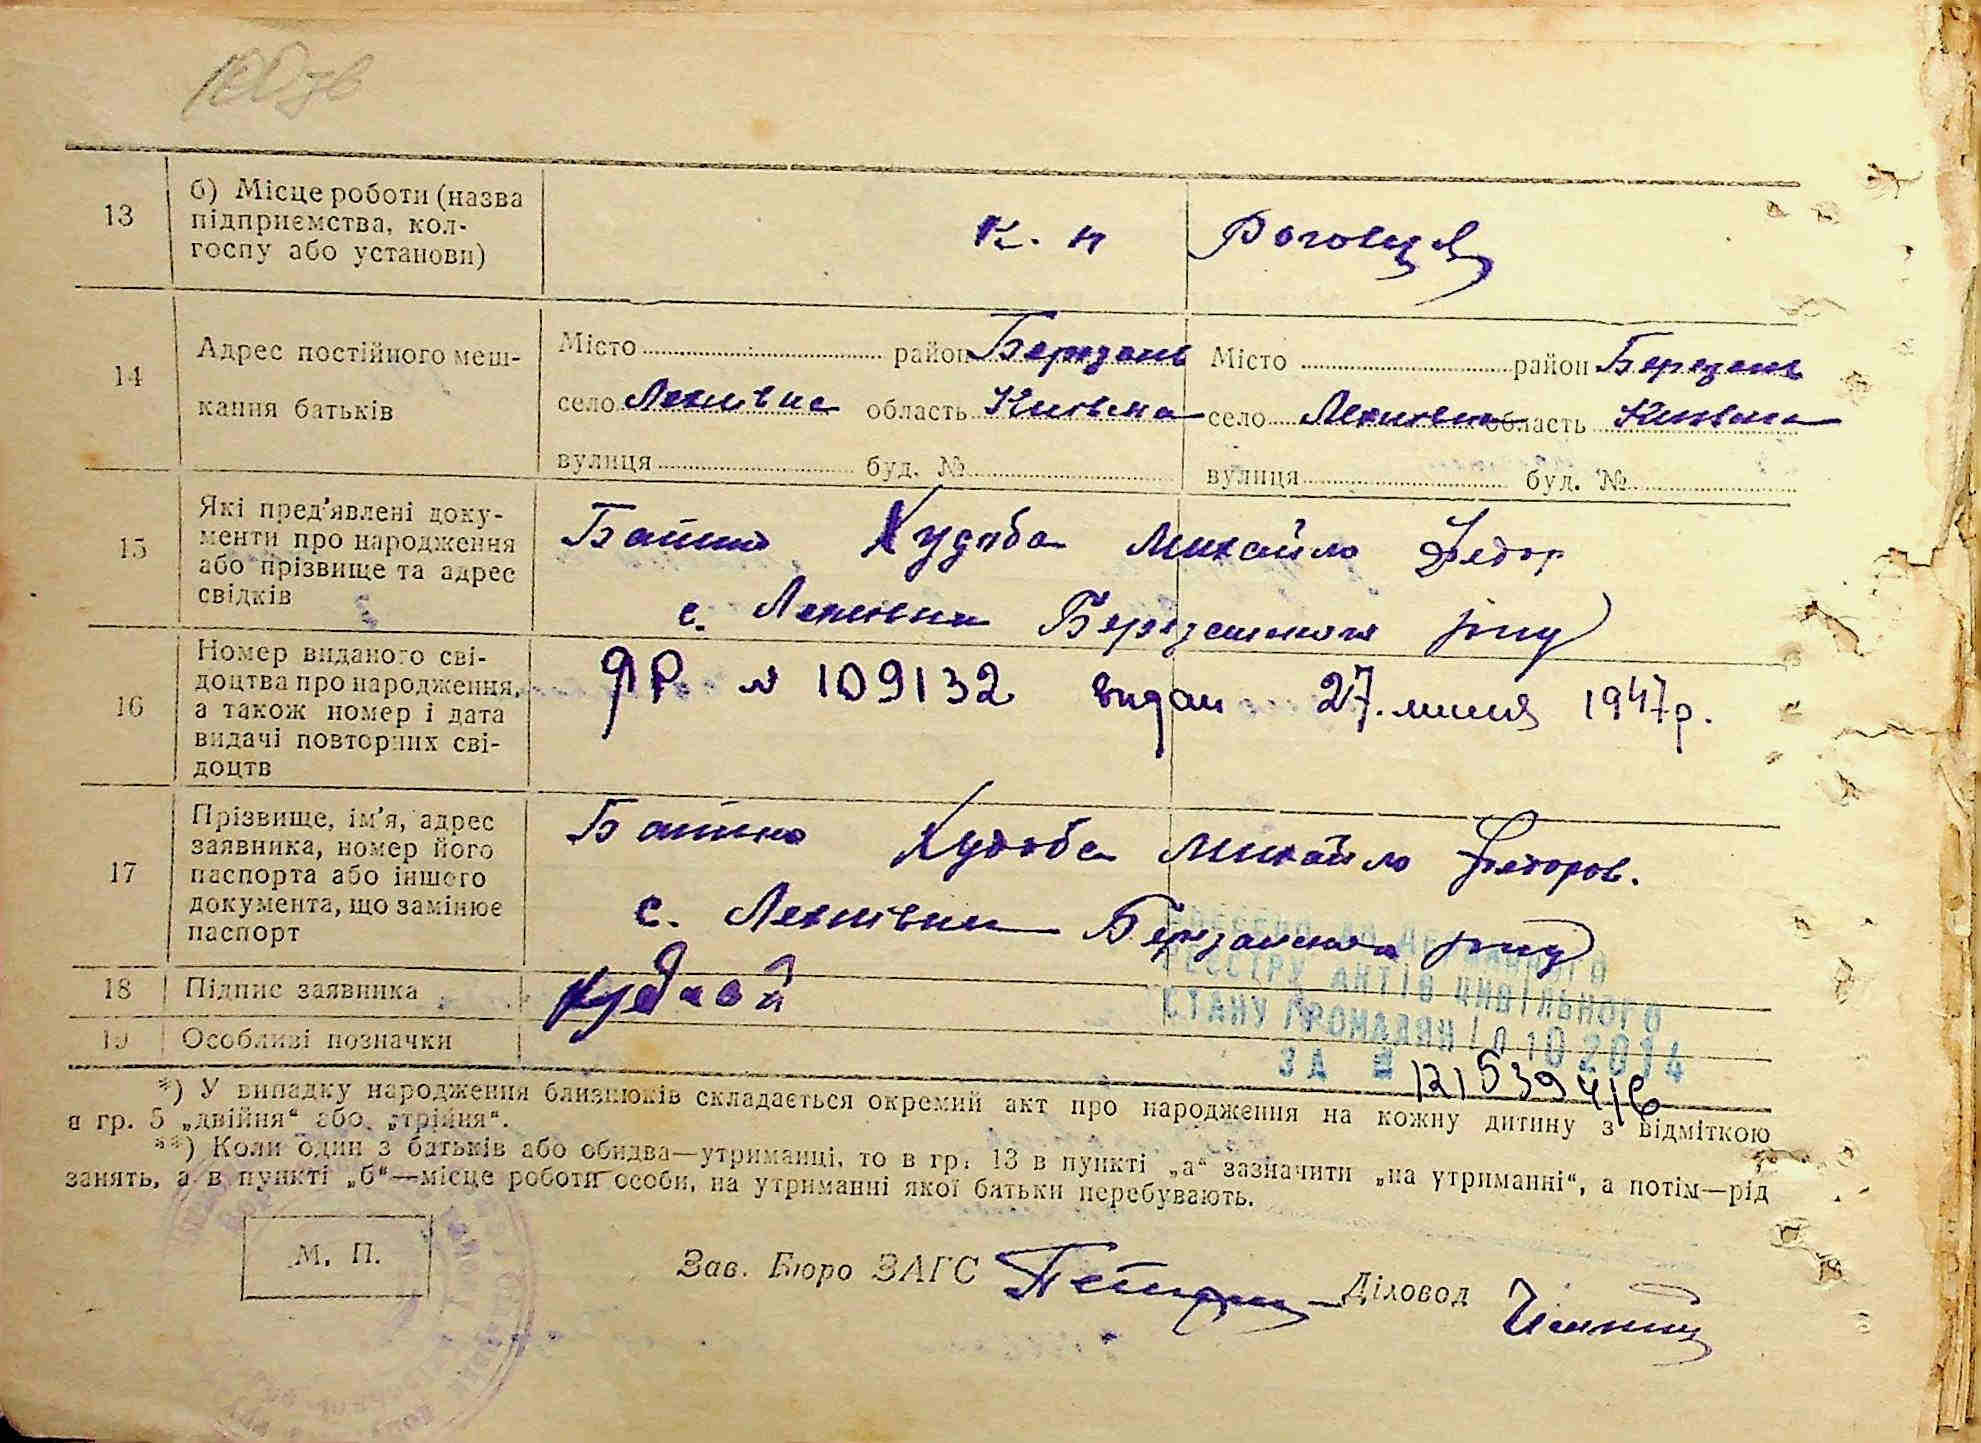 13
б) Місце роботи (назва
підприємства, кол-
госпу або установи)
к. п
14
Адрес постійного меш-
кання батьків
Місто район Березань
село Лехнівка область Київська
вулиця буд. №
Місто район Березань
село Лехнівка область Київська
вулиця буд. №
15
Які пред'явлені доку-
менти про народження
або прізвище та адрес
свідків
Батько Худоба Михайло Федор
с. Лехнівка Березанського р-ну
16
Номер виданого сві-
доцтва про народження,
а також номер і дата
видачі повторних сві-
доцтв
ЯР. № 109132 видан 27. липня 1947р.
17
Прізвище, ім'я, адрес
заявника, номер його
паспорта або іншого
документа, що замінює
паспорт
Батько Худоба Михайло Федоров.
с. Лехнівка Березанського р-ну
18
Підпис заявника
19
Особливі позначки
ВНЕСЕНО ДО ДЕРЖАВНОГО
РЕЄСТРУ АКТІВ ЦИВІЛЬНОГО
СТАНУ ГРОМАДЯН 10 10 2014
ЗА №
*) У випадку народження близнюків складається окремий акт про народження на кожну дитину з відміткою
в гр. 5 „двійня“ або „трійня“.
**) Коли один з батьків або обидва—утриманці, то в гр. 13 в пункті „а“ зазначити „на утриманні“, а потім—рід
занять, а в пункті „б“—місце роботи особи, на утриманні якої батьки перебувають.
М. П.
Зав. Бюро ЗАГС
Діловод